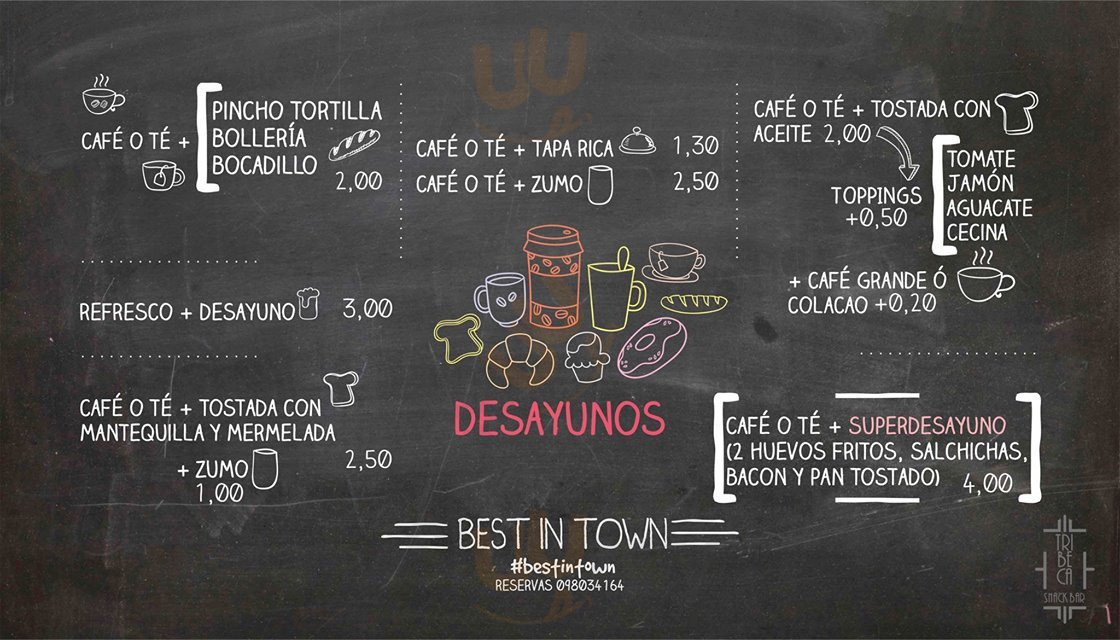 CAFÉ O TÉ +
PINCHO TORTILLA
BOLLERÍA
BOCADILLO
2,00
REFRESCO + DESAYUNO 3,00
CAFÉ O TÉ + TOSTADA CON
MANTEQUILLA Y MERMELADA
2,50
+ ZUMO
1,00
CAFÉ O TÉ + TAPA RICA 1,30
CAFÉ O TÉ + ZUMO 2,50
DESAYUNOS
CAFÉ O TÉ + TOSTADA CON
ACEITE 2,00
TOPPINGS
+0,50
TOMATE
JAMÓN
AGUACATE
CECINA
+ CAFÉ GRANDE Ó
COLACAO +0,20
CAFÉ O TÉ + SUPERDESAYUNO
(2 HUEVOS FRITOS, SALCHICHAS,
BACON Y PAN TOSTADO) 4,00
BEST IN TOWN
#bestintown
RESERVAS 098034164
TRI
BE
CA
SNACK BAR